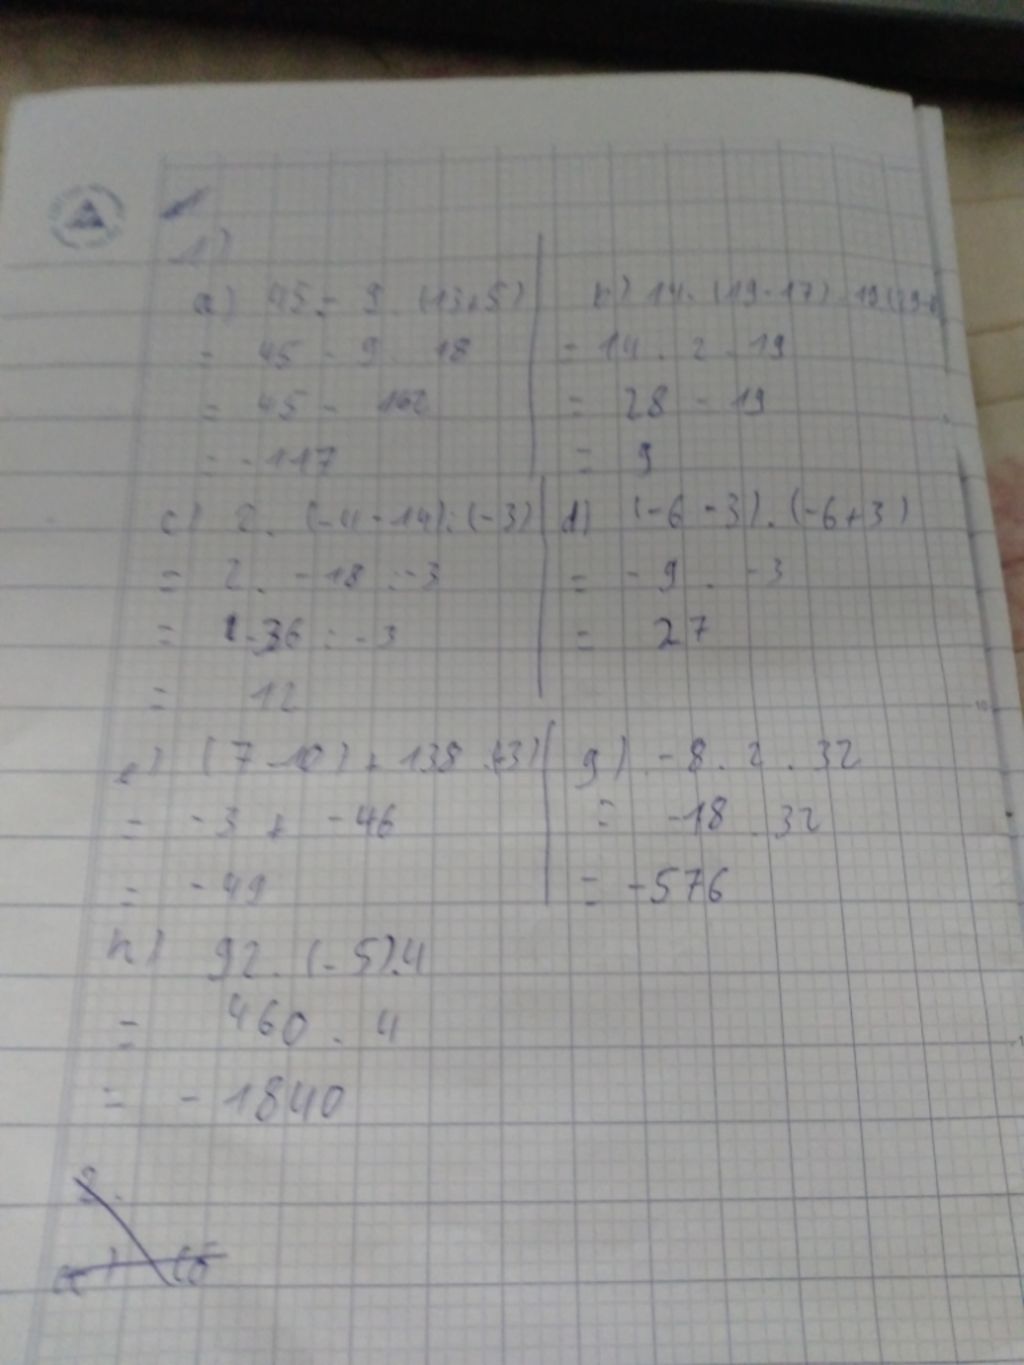 1)
a) 45 - 9 . (13+5)
= 45 - 9 . 18
= 45 - 162
= -117
b) 14 . (19-17) - 19
= 14 . 2 - 19
= 28 - 19
= 9
c) 2 . (-4-14) : (-3)
= 2 . -18 : -3
= -36 : -3
= 12
d) (-6-3) . (-6+3)
= -9 . -3
= 27
e) (7-10) + 138 : (-3)
= -3 + -46
= -49
g) -8 . 2 . 32
= -18 . 32
= -576
h) 92 . (-5) . 4
= 460 . 4
= -1840
2.
a)